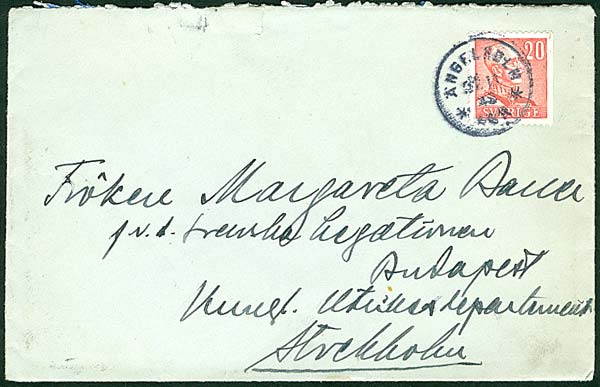 20
ÄNGELHOLM
SVERIGE
Fröken Margareta Bauer
f.v.b. Svenska Legationen
Budapest
Kungl. Utrikesdepartementet
Stockholm